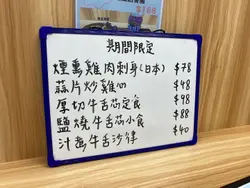 期間限定
煙燻雞肉刺身(日本) $78
蒜片炒雞心 $48
厚切牛舌筋定食 $98
鹽燒牛舌筋小食 $88
汁煮牛舌沙律 $40